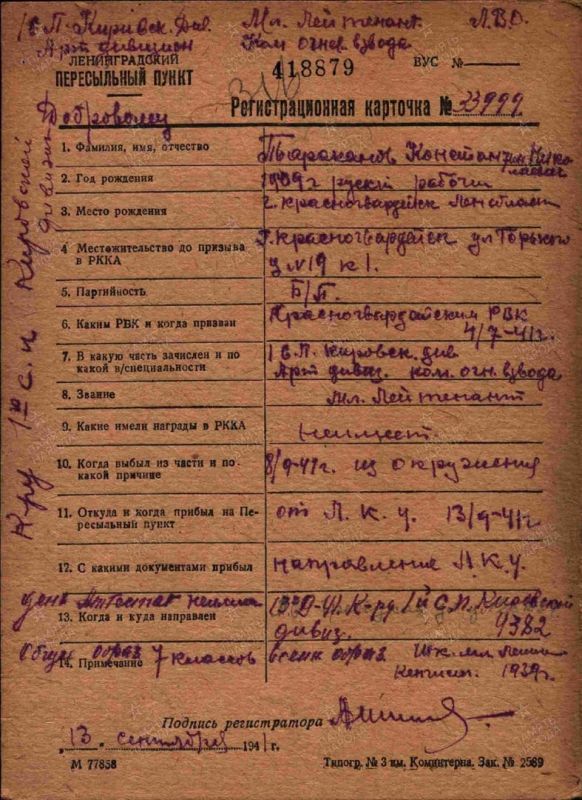 1 с.п. Кировск. див. Мл. Лейтенант Л.В.О.
Арт дивизион Ком огнев. взвода
ЛЕНИНГРАДСКИЙ
ПЕРЕСЫЛЬНЫЙ ПУНКТ
418879
ВУС №
Доброволец
Регистрационная карточка № 33999
К-ру 1го с.п Кировской дивизии
1. Фамилия, имя, отчество Тараканов Константин Николаевич
2. Год рождения 1909г руский рабочий
3. Место рождения г. Красногвардейск Ленобласт
4 Местожительство до призыва в РККА г. Красногвардейск ул Горького
д №19 к 1.
5. Партийность Б/П.
6. Каким РВК и когда призван Красногвардейским РВК
4/7-41г.
7. В какую часть зачислен и по какой в/специальности 1 с.п. Кировск. див
Арт дивиз. ком. огн. взвода
8. Звание мл. Лейтенант
9. Какие имели награды в РККА неимеет.
10. Когда выбыл из части и по какой причине 8/9-41г. из окружения
11. Откуда и когда прибыл на Пересыльный пункт от Л.К.У. 13/9-41г
12. С какими документами прибыл направление Л.К.У.
ден. Аттестат
13. Когда и куда направлен 13/9-41. К-ру 1й С.П. Кировской
дивиз. 4382
Общее образ 7 классов военн образ Шк. мл лейт
14. Примечание 1939г.
Подпись регистратора
„13" сентября 1941 г.
М 77858
Типогр. № 3 им. Коминтерна. Зак. № 2589